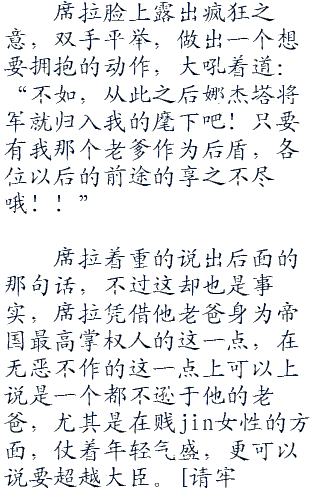 席拉脸上露出疯狂之
意，双手平举，做出一个想
要拥抱的动作，大吼着道：
“不如，从此之后娜杰塔将
军就归入我的麾下吧！只要
有我那个老爹作为后盾，各
位以后的前途的享之不尽
哦！！”
席拉着重的说出后面的
那句话，不过这却也是事
实，席拉凭借他老爸身为帝
国最高掌权人的这一点，在
无恶不作的这一点上可以上
说是一个都不逊于他的老
爸，尤其是在贱jin女性的方
面，仗着年轻气盛，更可以
说要超越大臣。[请牢